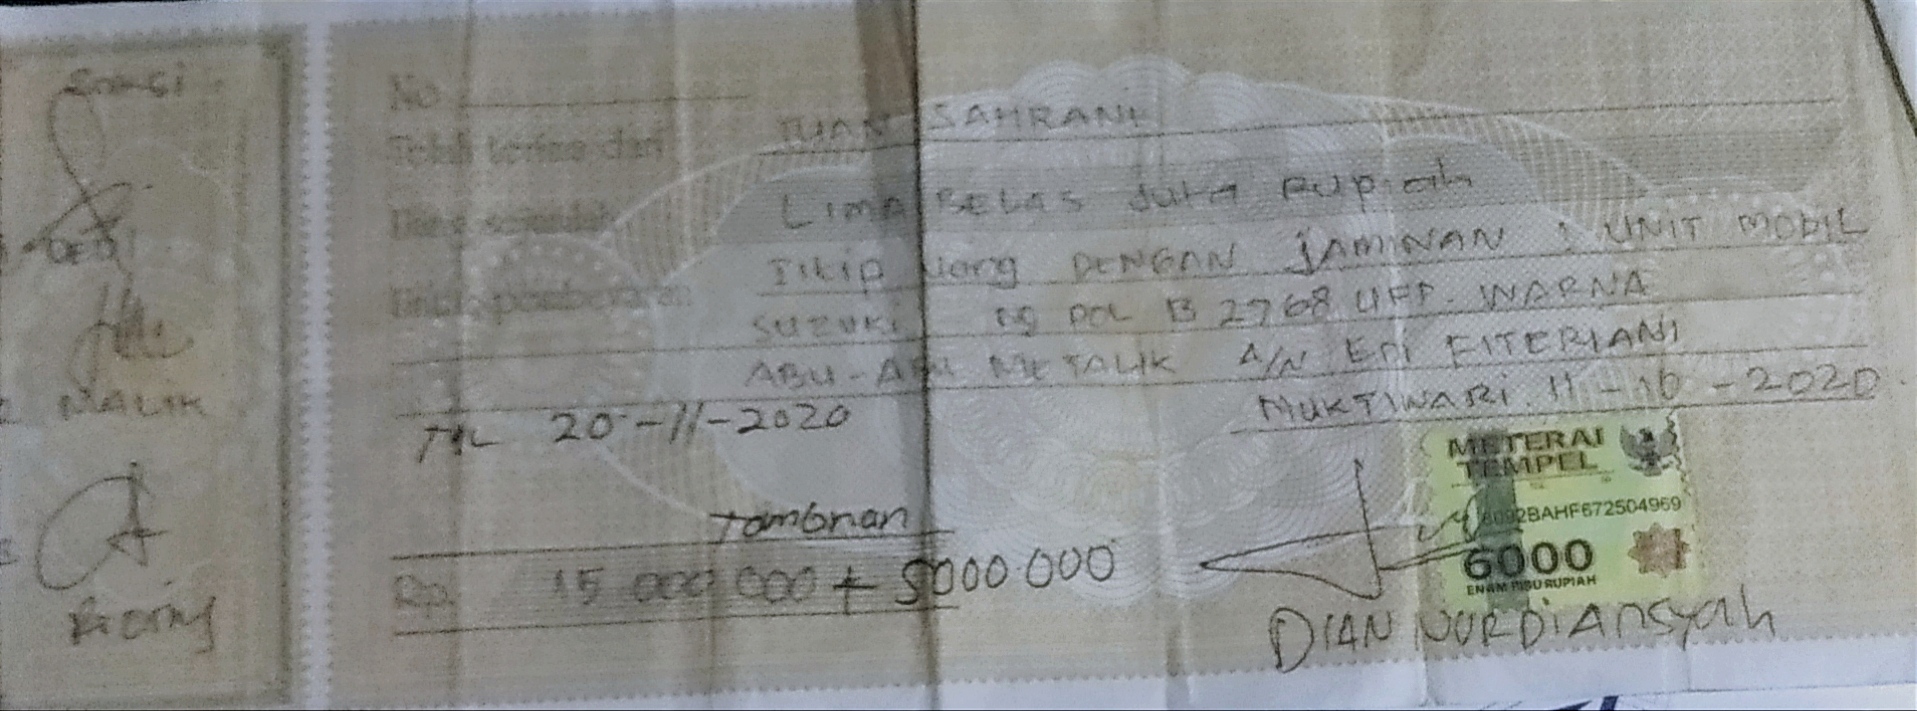 Saksi
DEDI
MALIK
No
Telah terima dari TUAN SAHRANI
Uang sejumlah LIMA BELAS Juta Rupiah
Untuk pembayaran Titip Uang DENGAN JAMINAN 1 UNIT MOBIL
SUZUKI NO POL B 2768 UFP. WARNA
ABU-ABU METALIK A/N EPI FITERIANI
TGL 20-11-2020
MUKTIWARI. 11-10-2020
METERAI
TEMPEL
6092BAHF672504969
6000
ENAM RIBU RUPIAH
Tambhan
Rp. 15 000 000 + 5000.000
DIAN NURDIAnsyah